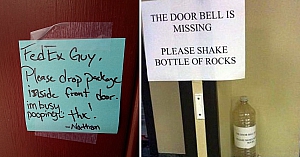 FedEx Guy,
Please drop package
inside front door.
im busy
pooping! thx!
-Nathan
THE DOOR BELL IS
MISSING
PLEASE SHAKE
BOTTLE OF ROCKS
THE DOOR BELL